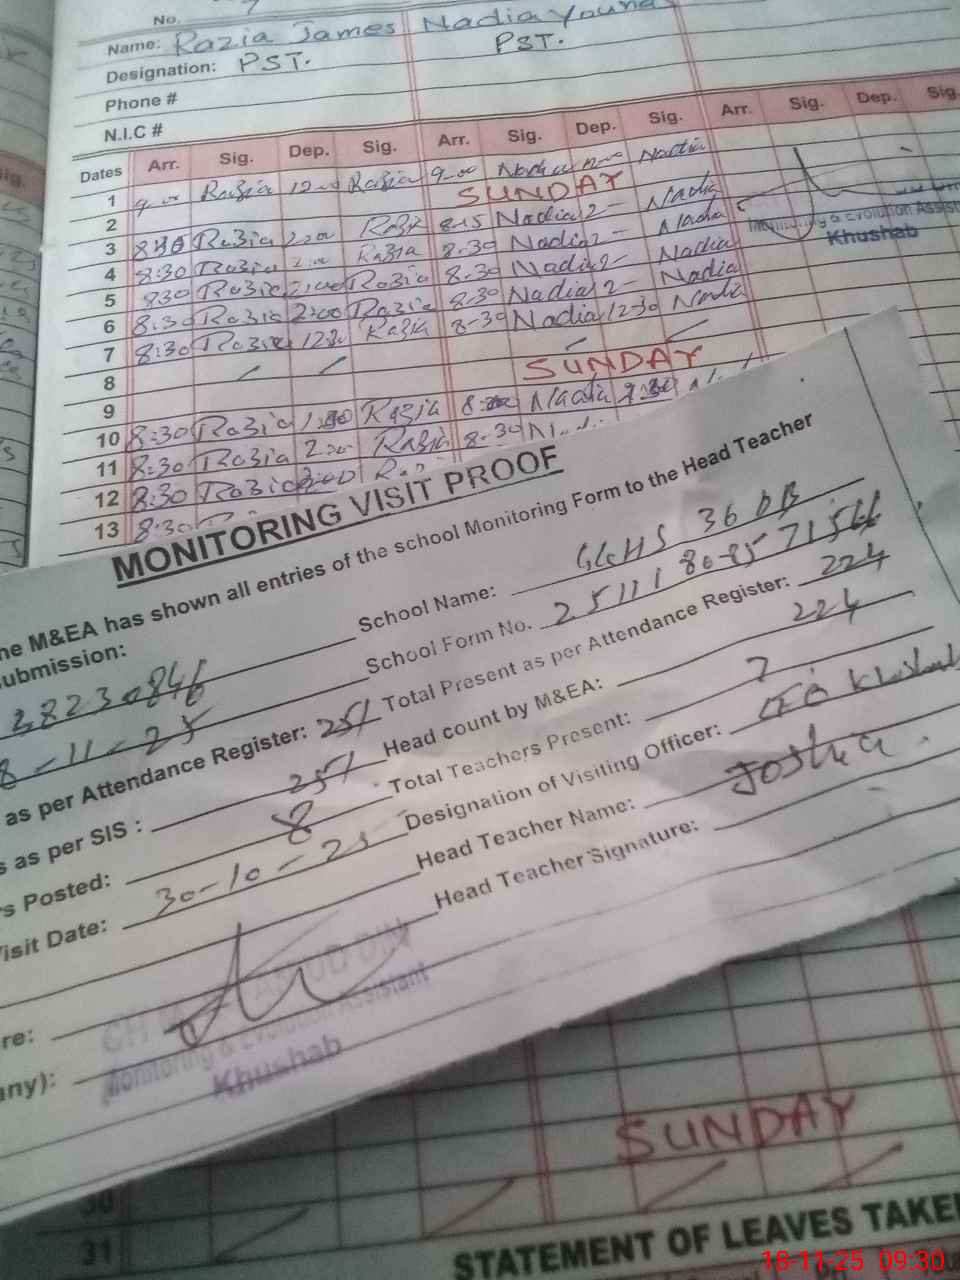 No. 7
Name: Razia James Nadia Youna
Designation: PST. PST.
Phone #
N.I.C #
Dates Arr. Sig. Dep. Sig. Arr. Sig. Dep. Sig. Arr. Sig. Dep. Sig.
1 9-00 Razia 12-00 Razia 9-00 Nadia Nadia
2 SUNDAY
3 Razia 2:00 Razia 8-15 Nadia 2- Nadia
4 8:30 Razia 2:00 Razia 8-30 Nadia 2- Nadia
5 830 Razia 2:00 Razia 8-30 Nadia 2- Nadia
6 8:30 Razia 2:00 Razia 8-30 Nadia 2- Nadia
7 8:30 Razia Razia 8-30 Nadia 12-30 Nadia
8
9 SUNDAY
10 8:30 Razia Razia Nadia
11 8:30 Razia 2:00 Razia 8-30
12 8:30 Razia
13 8:30
Monitoring & Evolution Assist
Khushab
MONITORING VISIT PROOF
he M&EA has shown all entries of the school Monitoring Form to the Head Teacher
ubmission:
School Name: GGHS 36 DB
38230846 School Form No. 25111808571566
8-11-25 Total Present as per Attendance Register: 224
as per Attendance Register: 251 Head count by M&EA: 224
s as per SIS : 251 Total Teachers Present: 7
rs Posted: 8 Designation of Visiting Officer: CEO Khushab
isit Date: 30-10-25 Head Teacher Name: Joshua
Head Teacher Signature:
re:
any):
Monitoring & Evolution Assistant
Khushab
SUNDAY
30
31
STATEMENT OF LEAVES TAKE
18-11-25 09:30